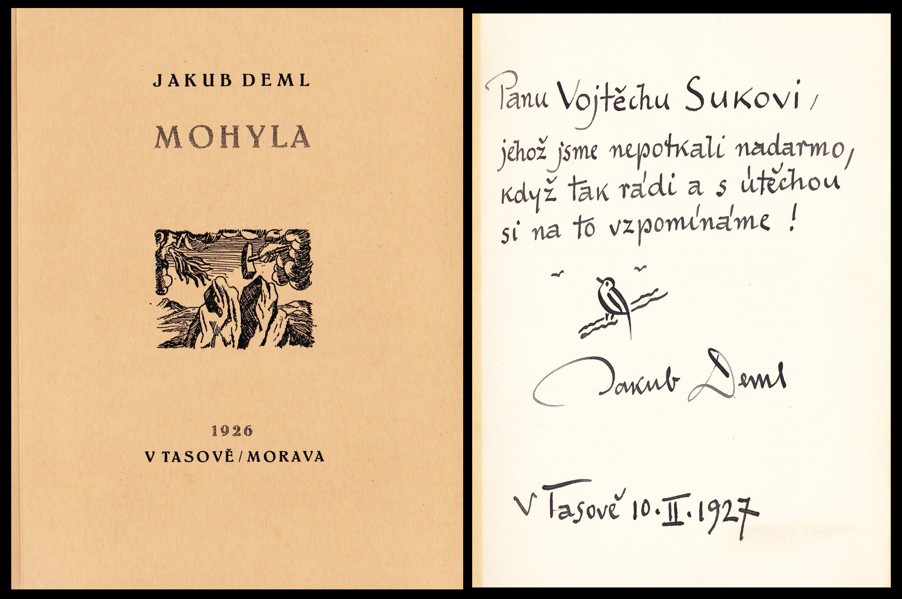 JAKUB DEML
MOHYLA
1926
V TASOVĚ/MORAVA
Panu Vojtěchu Sukovi,
jehož jsme nepotkali nadarmo,
když tak rádi a s útěchou
si na to vzpomínáme!
Jakub Deml
V Tasově 10.II.1927